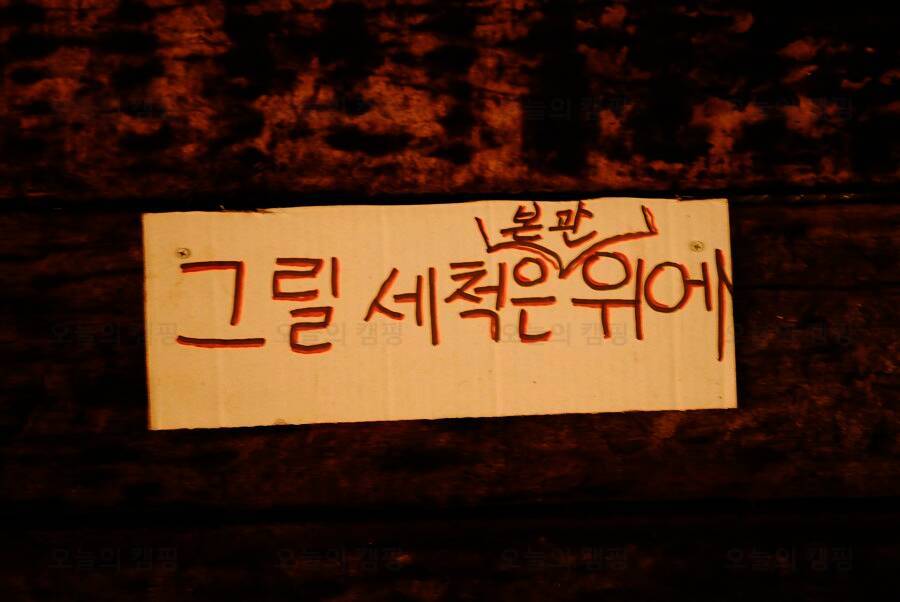 본관
그릴 세척은 위에
오늘의 캠핑 오늘의 캠핑 오늘의 캠핑 오늘의 캠핑
오늘의 캠핑 오늘의 캠핑 오늘의 캠핑 오늘의 캠핑
오늘의 캠핑 오늘의 캠핑 오늘의 캠핑 오늘의 캠핑